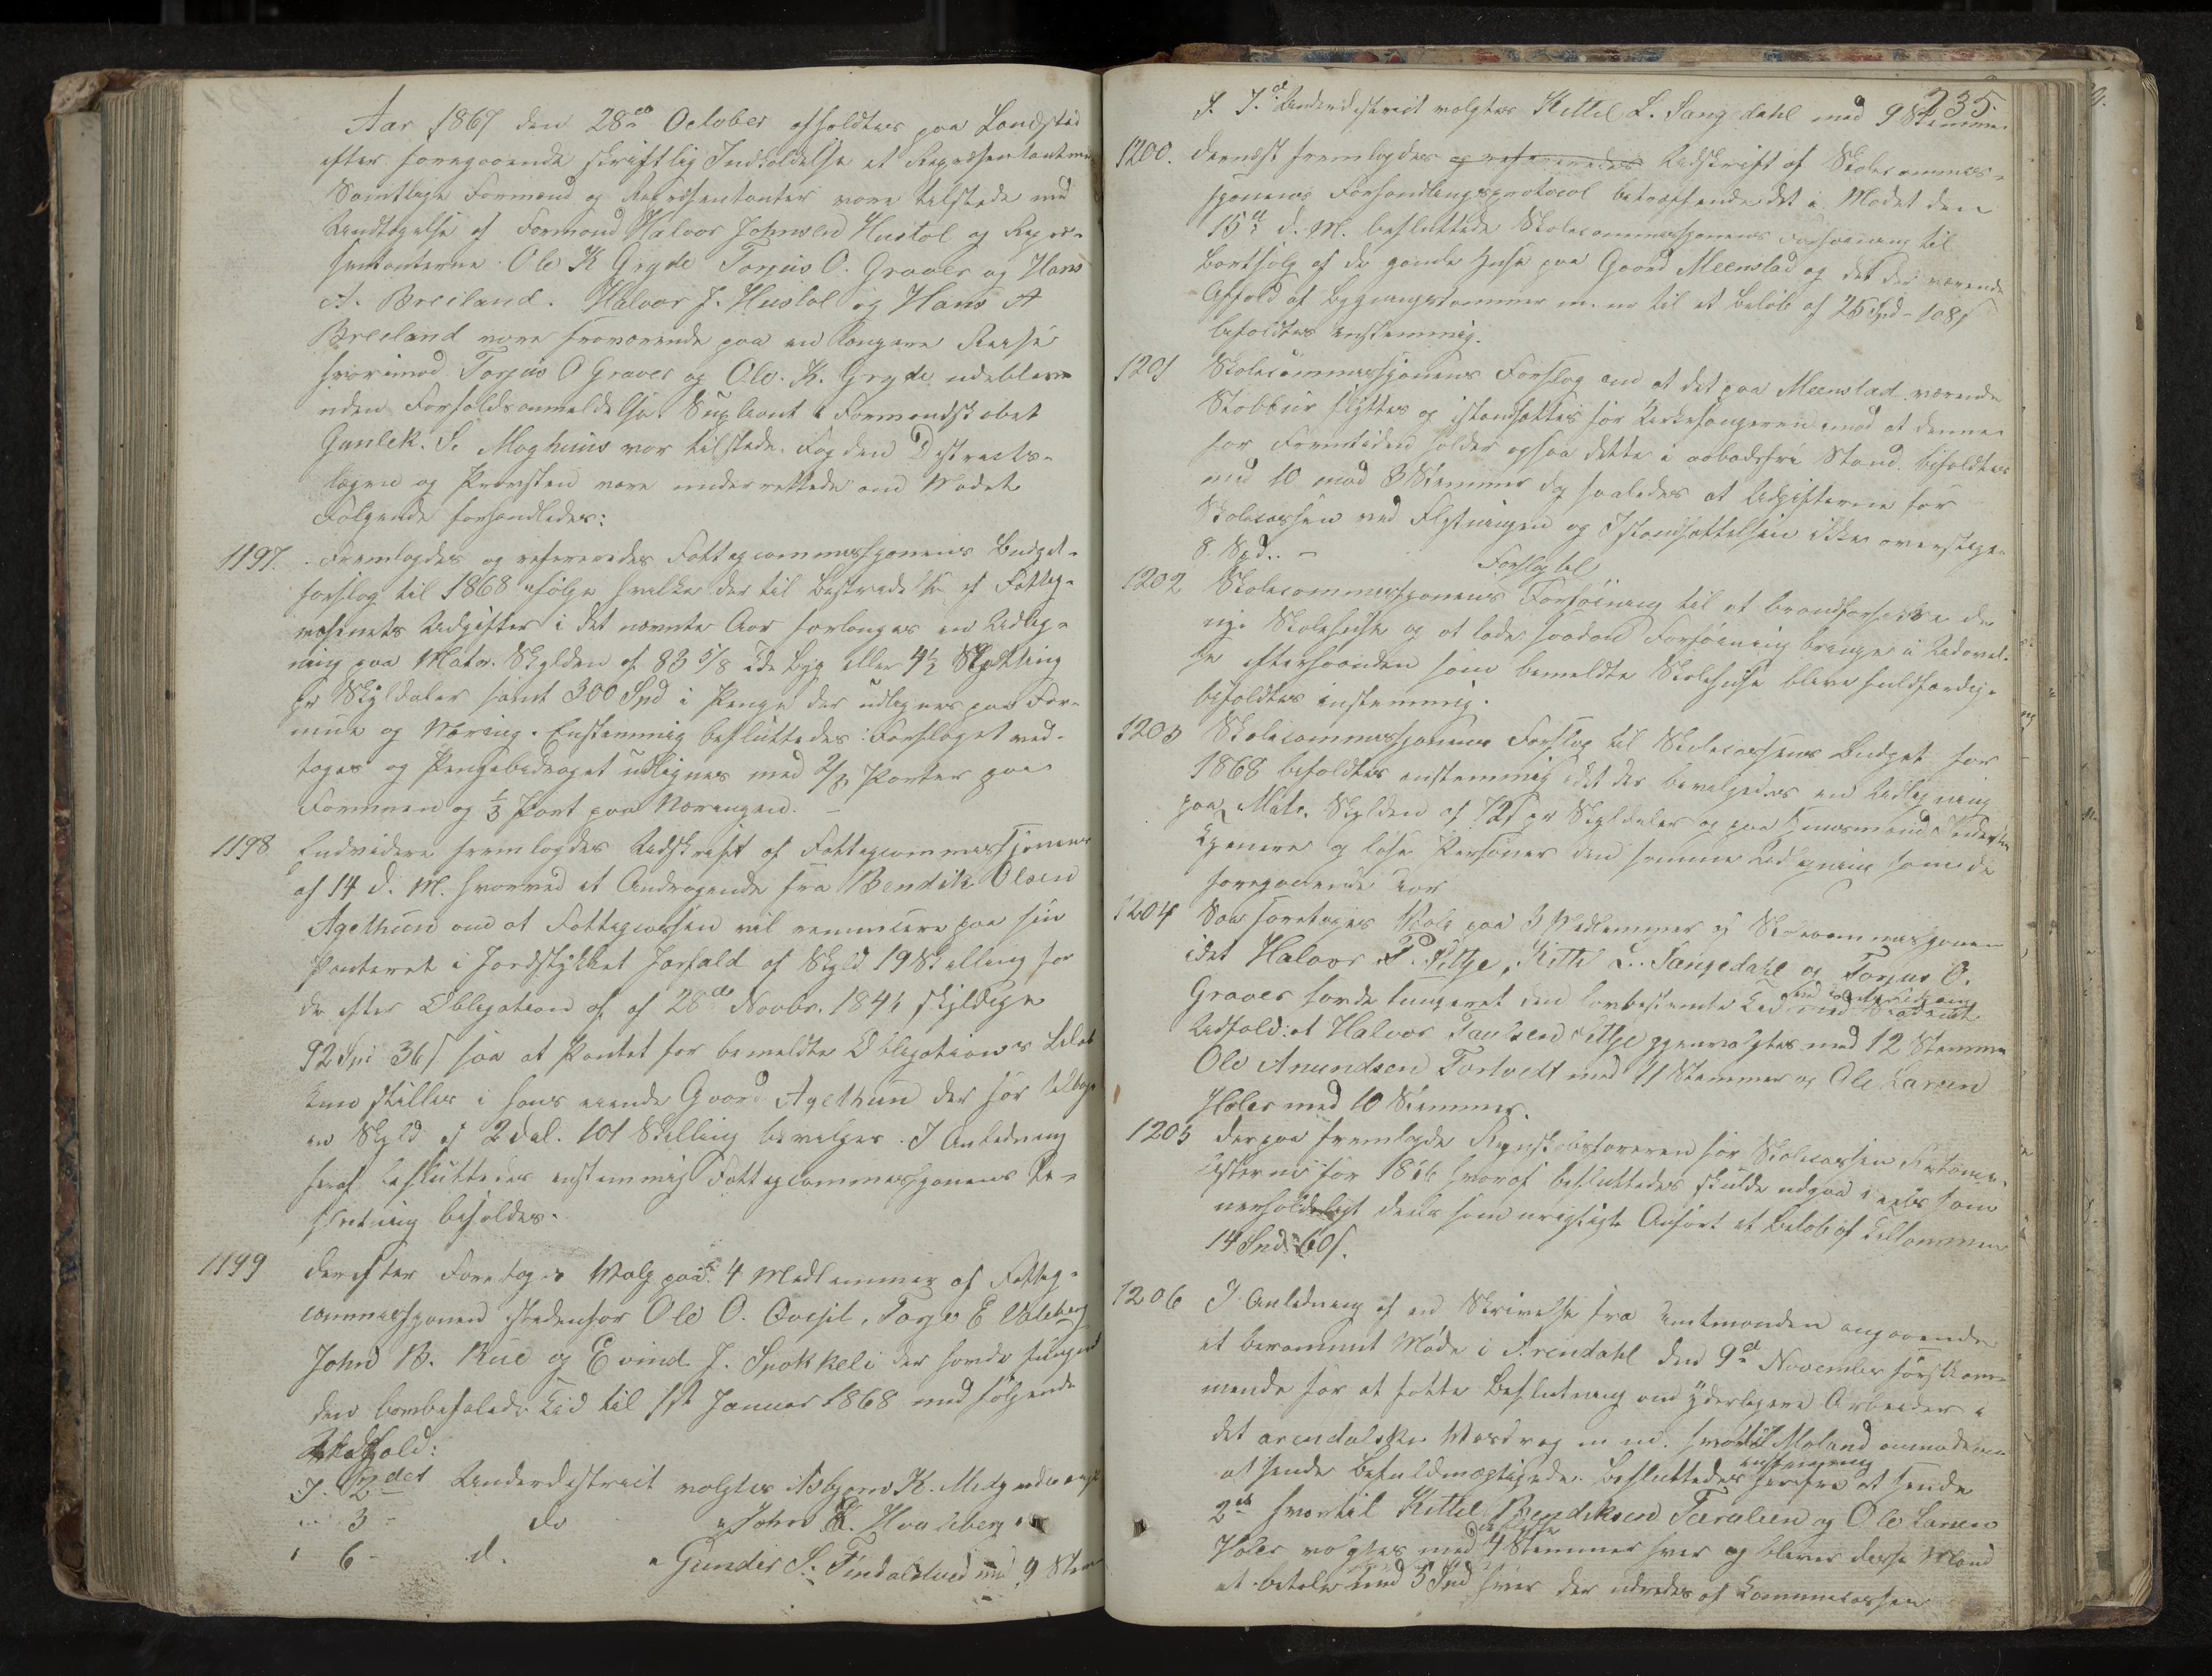 Aar 1867 den 28de October afholdtes paa Landstad
efter foregaaende skriftlig Indkaldelse et Repræsentantmø
Samtlige Formænd og Repræsentanter vare tilstede med
Undtagelse af Formand Halvor Johnsen Hustol og Repræ-
sentanterne Ole K Gryde Torjus O. Graver og Hans
A. Breiland. Halvor J. Hustol og Hans A
Breiland vare fraværende paa en længere Reise
hvorimod Torjus O Graver og Ole K. Gryde udebleve
uden Forfaldsanmeldelse. Supleant i Formandskabet
Gunlek. S. Moghuus var tilstede. Fogden Districts-
lægen og Provsten vare underrettede om Mødet
Følgende forhandledes:
1197. Fremlagdes og refereredes Fattigcommissjonens Budget-
forslag til 1868 ifølge hvilke der til Bestridelse af Fattig-
væsenets Udgifter i det nævnte Aar forlanges en Udlig-
ning paa Matr. Skylden af 83 5/8 Tde Byg eller 4½ Skilling
pr Skyldaler samt 300 Spd i Penge der udlignes paa For-
mue og Næring. Enstemmig besluttedes: Forslaget ved-
tages og Pengebidraget udlignes med 2/3 Parter paa
Formuen og 1/3 Part paa Næringen. –
1198 Endvidere fremlagdes Udskrift af Fattigcommissjonens
af 14 d. M. hvorved et Andragende fra Bendik Olsen
Agethun om at Fattigcassen vil renuncere paa sin
Panteret i Jordstykket Jorfald af Skyld 19 Skilling for
de efter Obligation af 28de Novbr. 1841 skyldige
92 Spd 36 s saa at Pantet for bemeldte Obligations Beløb
kun stilles i hans eiende Gaard Agethun der har tilbage
en Skyld af 2 Dal. 101 Skilling bevilges. I Anledning
heraf besluttedes enstemmig Fattigcommissjonens Be-
slutning bifaldes.
1199 Derefter Foretoges Valg paa 4 Medlemmer af Fattig-
commissjonen istedenfor Ole O. Qvesjil, Torje E Valeberg
John B. Rue og Eivind J. Spokkeli der havde fungeret
den lovbefalede Tid til 1ste Januar 1868 med følgende
Udfald:
I. 2det Underdistrict valgtes Asbjørn K.
" 3 – do " John K. Hvaleberg "
" 6 – d. " Gunder S. Tindalstved med 9 Stem
235.
I. 7de Underdistrict valgtes Kittel L. Sangedahl med 9 Stemmer
1200. Dernæst fremlagdes og refereredes Udskrift af Skolecommis-
sjonens Forhandlingsprotocol betræffende det i Mødet den
15de d. M. besluttede Skolecommissjonens Forføining til
Bortsalg af de gamle Huse paa Gaard Meenstad og det der værende
Affald af Bygningstømmer m. m til et Beløb af 25 Spd – 108 s
bifaldtes enstemmig.
1201 Skolecommissjonens Forslag om at det paa Meenstad værende
Stabbur flyttes og istandsættes for Kirkesangeren imod at denne
for Fremtiden holder ogsaa dette i aabodsfri Stand bifaldtes
med 10 mod 3 Stemmer dog saaledes at Udgifterne for
Skolecassen ved Flytningen og Istandsættelsen ikke overstiger
8 Spd. –
Forslag til
1202 Skolecommissjonens Forføining til at brandforsikre de
nye Skolehuse og at lade saadan Forføining bringe i Udøvel-
se efterhaanden som bemeldte Skolehuse blive fuldfærdige
bifaldtes enstemmig.
1203 Skolecommissjonens Forslag til Skolecassens Budget for
1868 bifaldtes enstemmig idet der bevilgedes en Udligning
paa Matr. Skylden af 12 s pr Skyldaler og paa Huusmænd Inderster
Tjenere og løse Personer den samme Udligning som de
foregaaende Aar
1204 Saa foretoges Valg paa 3 Medlemmer af Skolecommissjonen
idet Halvor P. Kittel L. Sangedahl og Torjus O.
Graver havde fungeret den lovbestemte Tid med saadant
Udfald: at Halvor gjenvalgtes med 12 Stemmer
Ole Anundsen Tortvedt med 11 Stemmer og Ole Larsen
Holer med 10 Stemmer.
1205 Derpaa fremlagde Regnskabsføreren for Skolecassen
listerne for 1866 hvoraf besluttedes skulde udgaae deels som
uerholdeligt deels som urigtigt Anført et Beløb af tilsammen
14 Spd 60 s.
1206 I Anledning af en Skrivelse fra Amtmanden angaaende
et berammet Møde i Arendahl den 9de November førstkom-
mende for at fatte Beslutning om yderligere Arbeider i
det arendalske Vasdrag m m. hvortil Moland anmodedes
enstemmig
at sende Befuldmægtigede. Besluttedes herfra at sende
2de hvortil Kittel Bendiksen og Ole Larsen
Holer valgtes med 4 Stemmer hver og bliver disse Mænd
at betale med 5 Spd hver der udredes af Communecassen